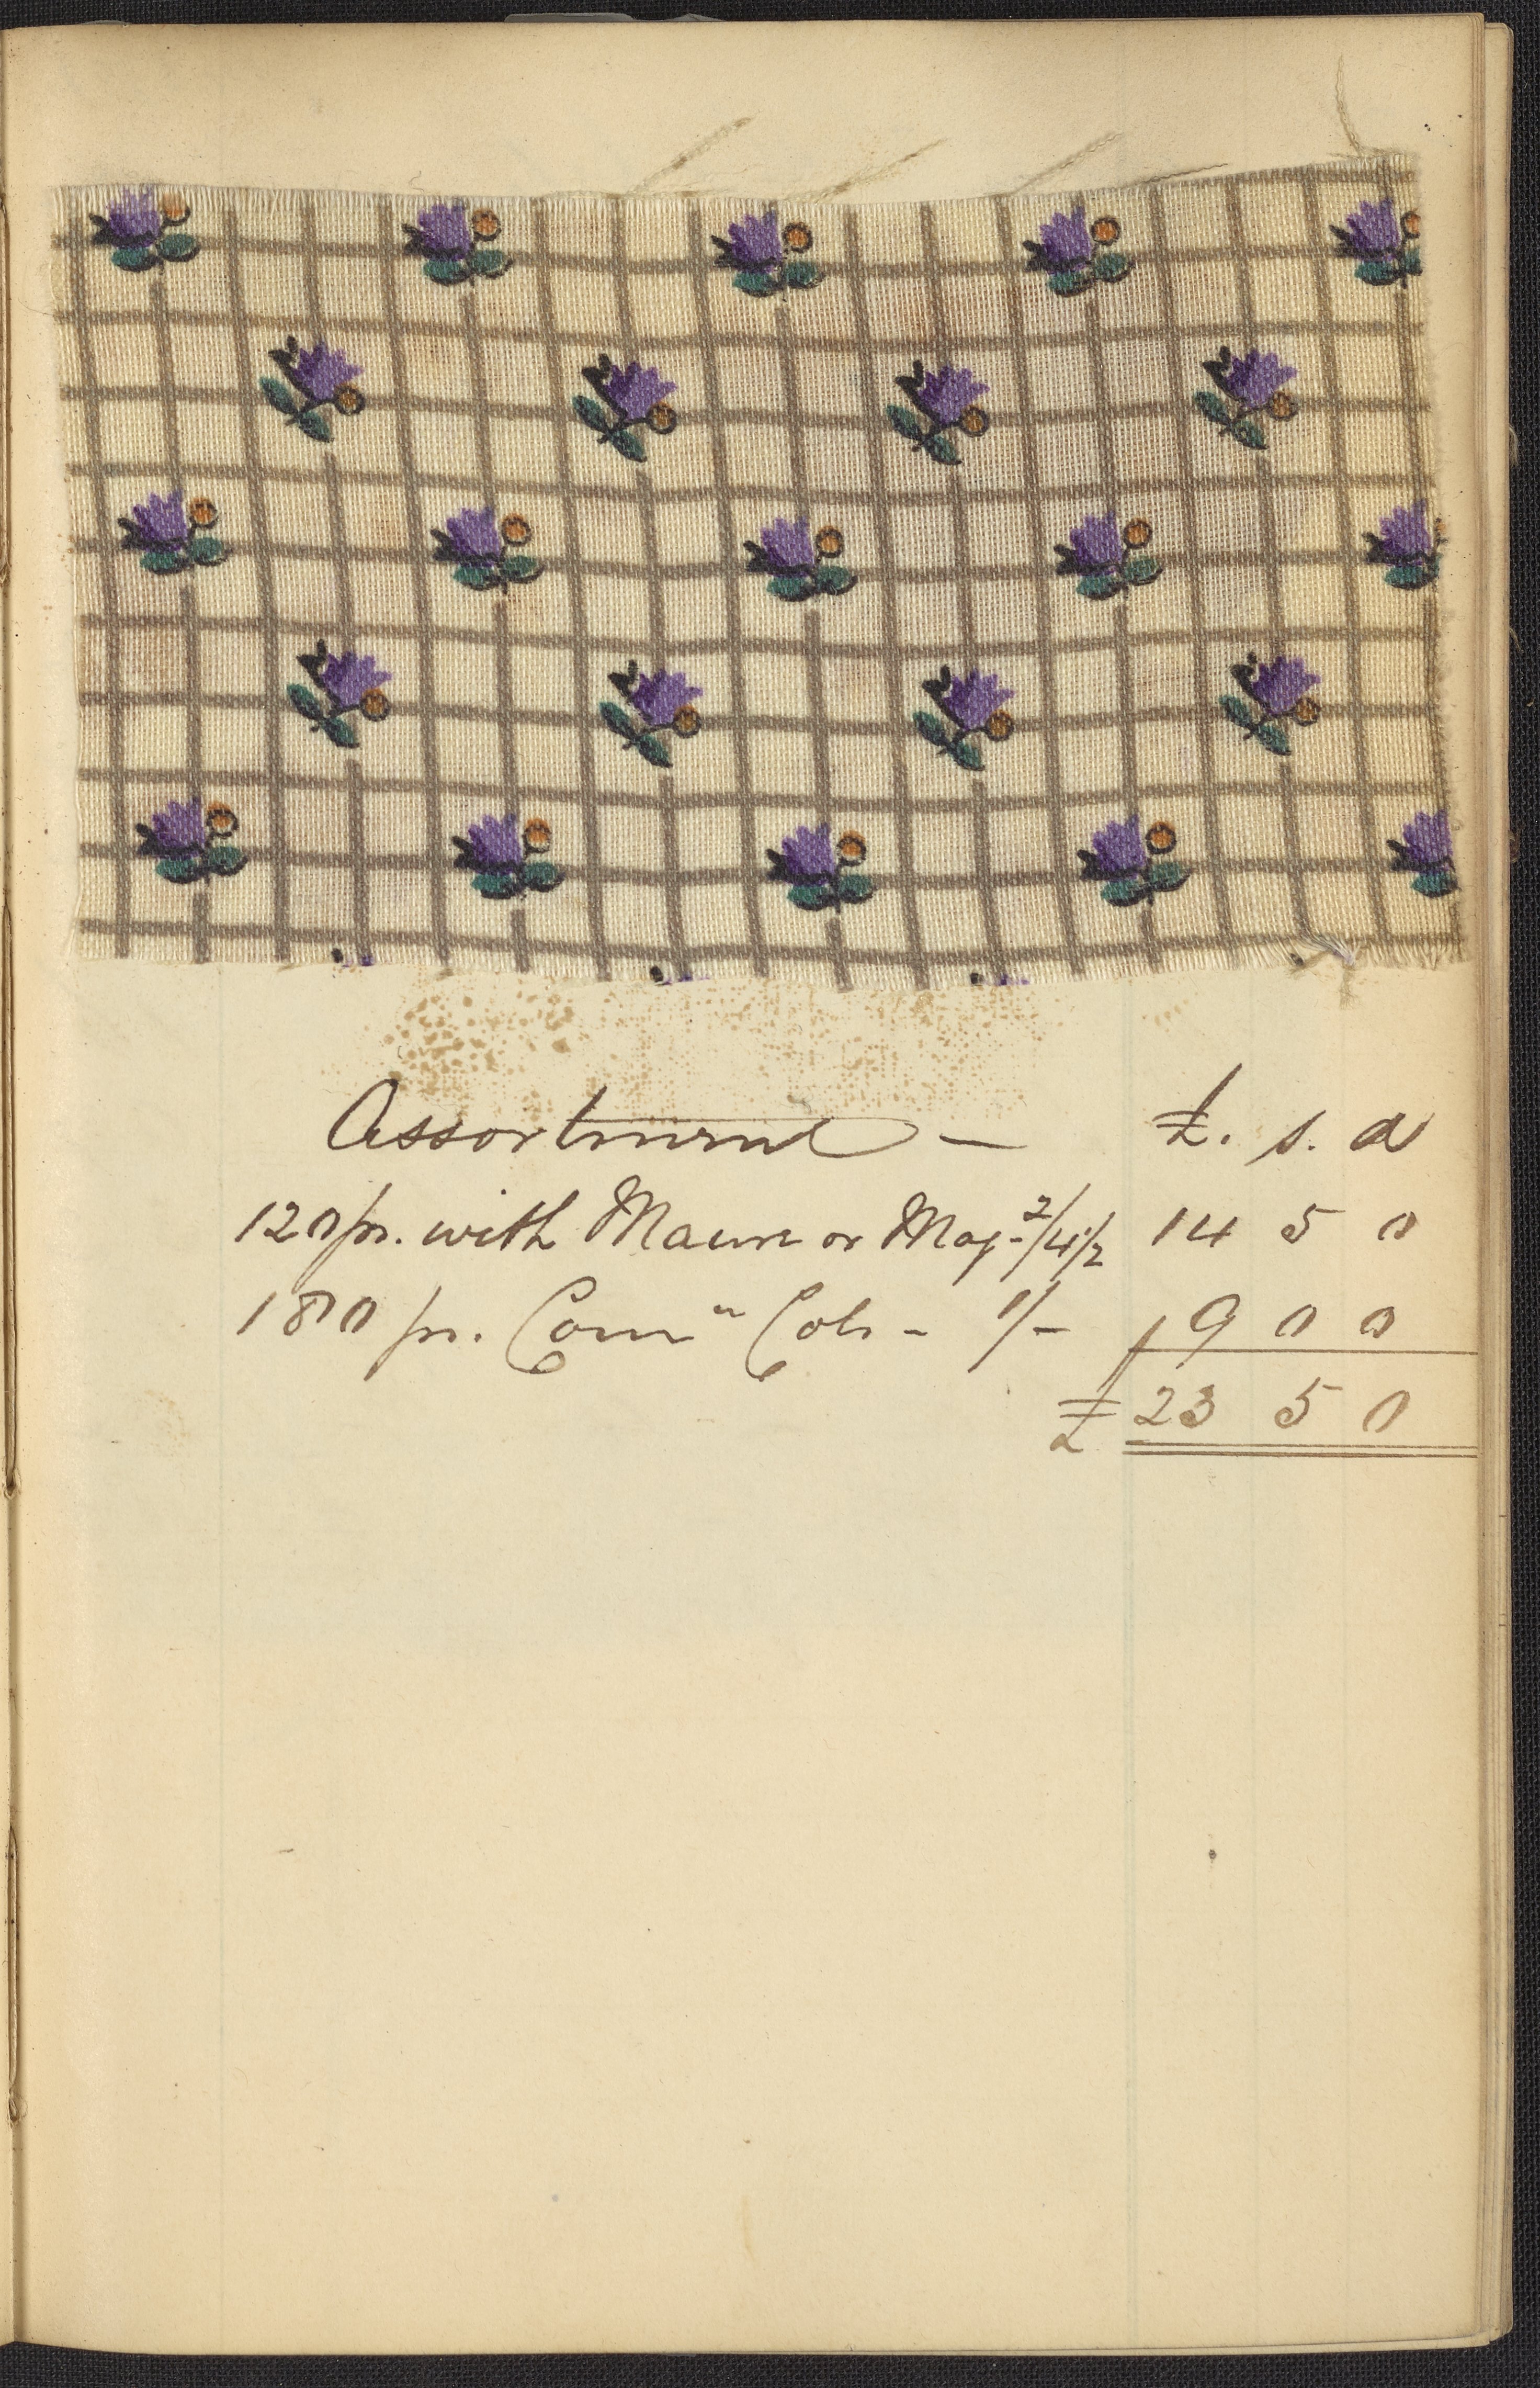 Assortment — £. s. d
120 pr. with Mauve or Mag - 2/4 1/2 14 5 0
180 pr. Comn Cols - 1/- 9 0 0
£ 23 5 0